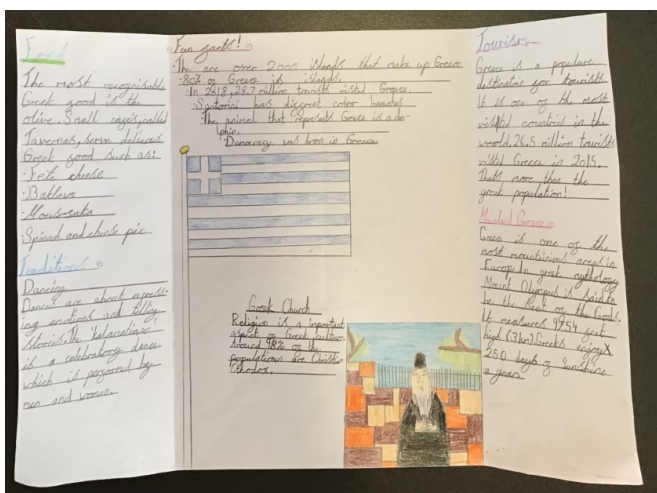 Food
The most recognisable
Greek food is the
olive. Small cafés, called
Tavernas, serve delicious
Greek food such as:
·Feta cheese
·Baklava
·Mous-saka
·Spinad and cheese pie
Traditions
Dancing
Dances are about express-
ing emotions and telling
stories. The kalamatianos
is a celebratory dance
which is performed by
men and women.
Fun facts!
·The are over 2000 islands that make up Greece
·80% of Greece is islands.
·In 2018, 28.7 million tourists visted Greece.
·Santorini has different color beaches
·The animal that represents Greece is a do-
phin.
·Democracy was born in Greece
Greek Church
Religion is a important
aspect of Greek culture
Around 98% of the
populations are Christian
Othodox.
Tourism
Greece is a populare
destination for tourists.
It is one of the most
visited countries in the
world, 26.5 million tourists
visted Greece in 2015.
That's more than the
greek population!
Greece
Greece is one of the
most mountinious areas in
Europe. In greek mythology
Mount Olympus is said to
be the Seat of the Gods.
It measures 9754 feet
high (3km). Greeks enjoys
250 days of sunshine
a year.